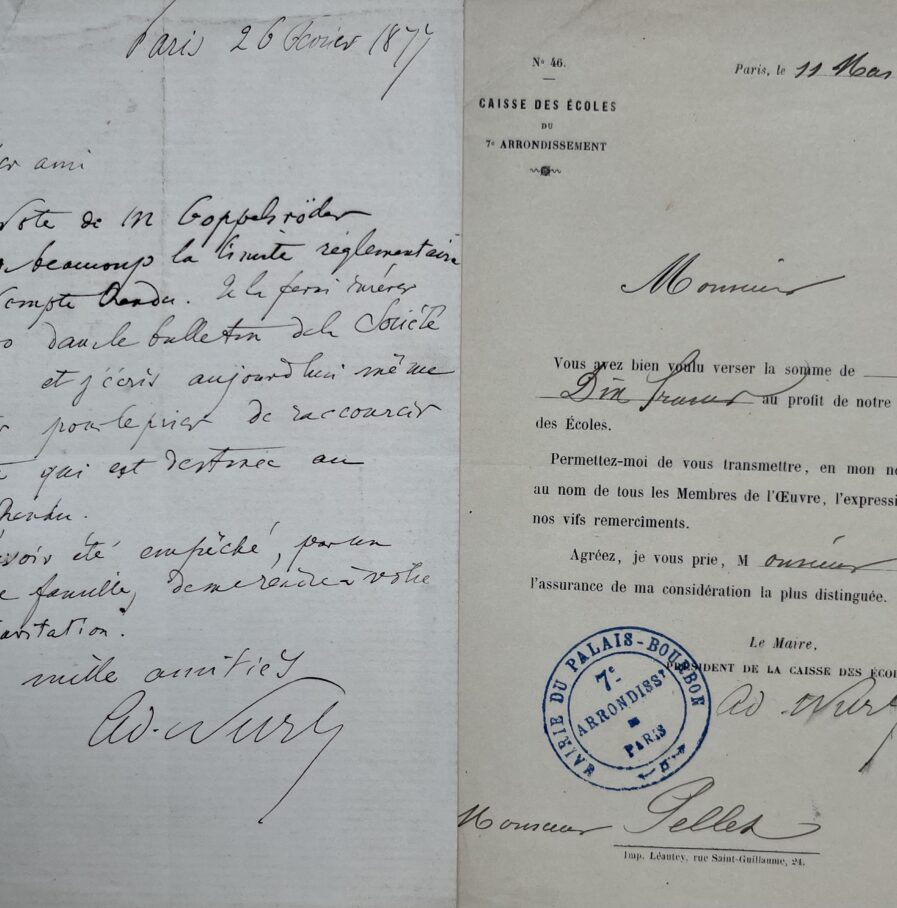 Paris 26 février 1877
er ami
Note de M Goppelsröder
beaucoup la limite réglementaire
Compte Rendu. Je la ferai insérer
dans le bulletin de la Société
et j'écris aujourd'hui même
pour le prier de raccourcir
qui est destinée au
Rendu.
avoir été empêché, par un
de famille, de me rendre à votre
invitation.
mille amitiés
Ad. Wurtz
N° 46.
Paris, le 11 Mai
CAISSE DES ÉCOLES
DU
7e ARRONDISSEMENT
Monsieur
Vous avez bien voulu verser la somme de
Dix francs au profit de notre
des Écoles.
Permettez-moi de vous transmettre, en mon no
au nom de tous les Membres de l'Œuvre, l'expressi
nos vifs remerciments.
Agréez, je vous prie, Monsieur
l'assurance de ma considération la plus distinguée.
Le Maire,
PRÉSIDENT DE LA CAISSE DES ÉCOL
Ad. Wurtz
MAIRIE DU PALAIS-BOURBON
7e
ARRONDISSt
PARIS
Monsieur Pellet
Imp. Léautey, rue Saint-Guillaume, 24.